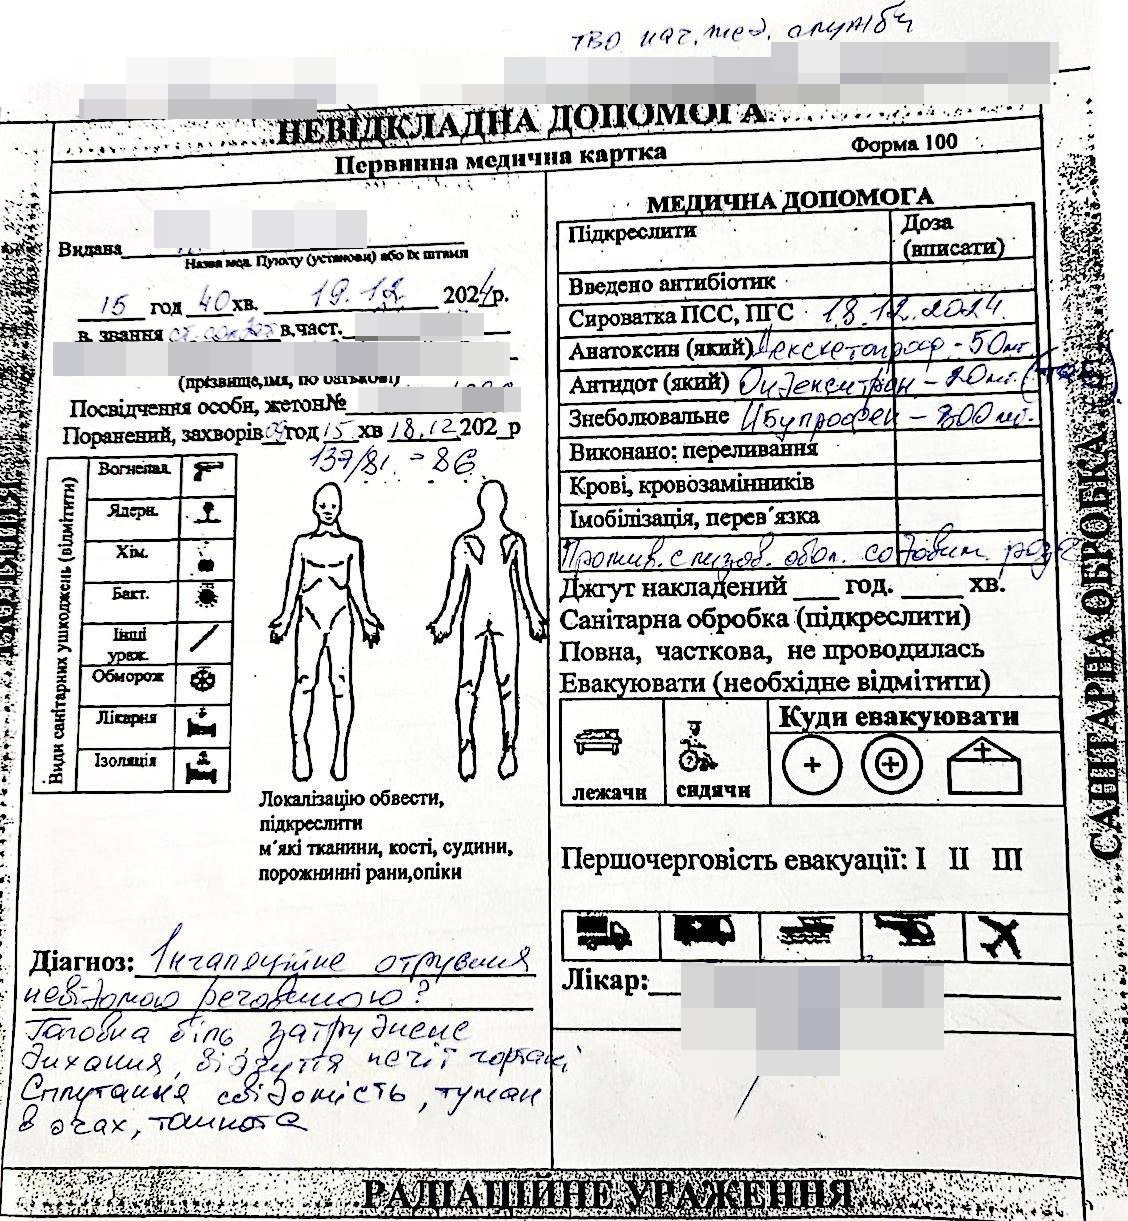 ТВО нач. мед. служби
НЕВІДКЛАДНА ДОПОМОГА
Первинна медична картка
Форма 100
Видана
Назва мед. Пункту (установи) або їх штамп
15 год 40 хв. 19.12 2024р.
в. звання ст. солдат в.част.
(прізвище,імя, по батькові)
Посвідчення особи, жетон№
Поранений, захворів год 15 хв 18.12 202 р
137/81. - 86
Види санітарних ушкоджень (відмітити)
Вогнепал.
Ядерн.
Хім.
Бакт.
Інші
ураж.
Обморож
Лікарня
Ізоляція
Локалізацію обвести,
підкреслити
м´які тканини, кості, судини,
порожнинні рани,опіки
Діагноз: Інгаляційне отруєння
невідомою речовиною?
Головна біль, затруднене
дихання, відчуття печії гортані
Сплутання свідомість, туман
в очах, тошнота
МЕДИЧНА ДОПОМОГА
Підкреслити
Доза
(вписати)
Введено антибіотик
Сироватка ПСС, ПГС 18.12.2024
Анатоксин (який) Декскетопроф - 50мг
Антидот (який) Ондансетрон -
Знеболювальне Ибупрофен -
Виконано: переливання
Крові, кровозамінників
Імобілізація, перев´язка
Промив. слизов. обол. содовим розч
Джгут накладений ___ год. ____ хв.
Санітарна обробка (підкреслити)
Повна, часткова, не проводилась
Евакуювати (необхідне відмітити)
Куди евакуювати
лежачи
сидячи
Першочерговість евакуації: I II III
Лікар:
САНІТАРНА ОБРОБКА
РАДІАЦІЙНЕ УРАЖЕННЯ